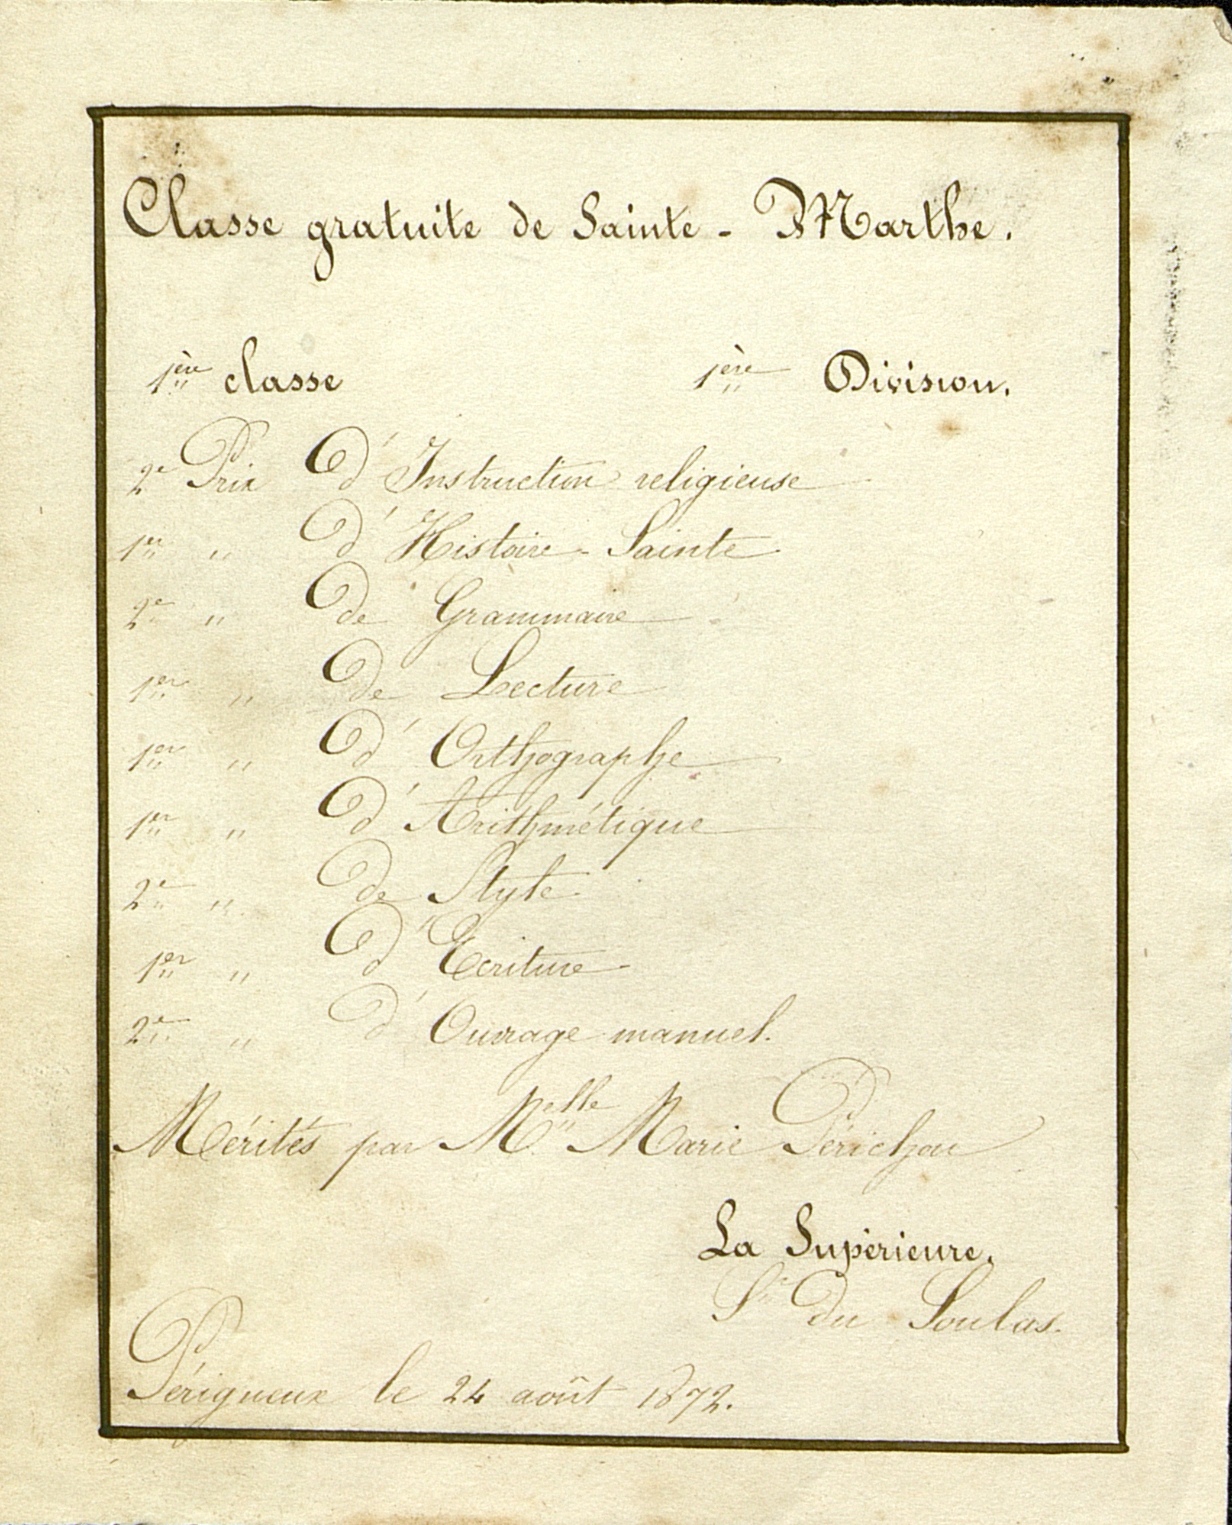 Classe gratuite de Sainte - Marthe.
1ère classe 1ère Division.
2e Prix d'Instruction religieuse
1er " d'Histoire - Sainte
2e " de Grammaire
1er " de Lecture
1er " d'Orthographe
1er " d'Arithmétique
2e " de Style
1er " d'Ecriture
2e " d'Ouvrage manuel.
Mérités par Melle Marie Périchou
La Supérieure.
Sr du Soulas.
Périgueux le 24 août 1872.